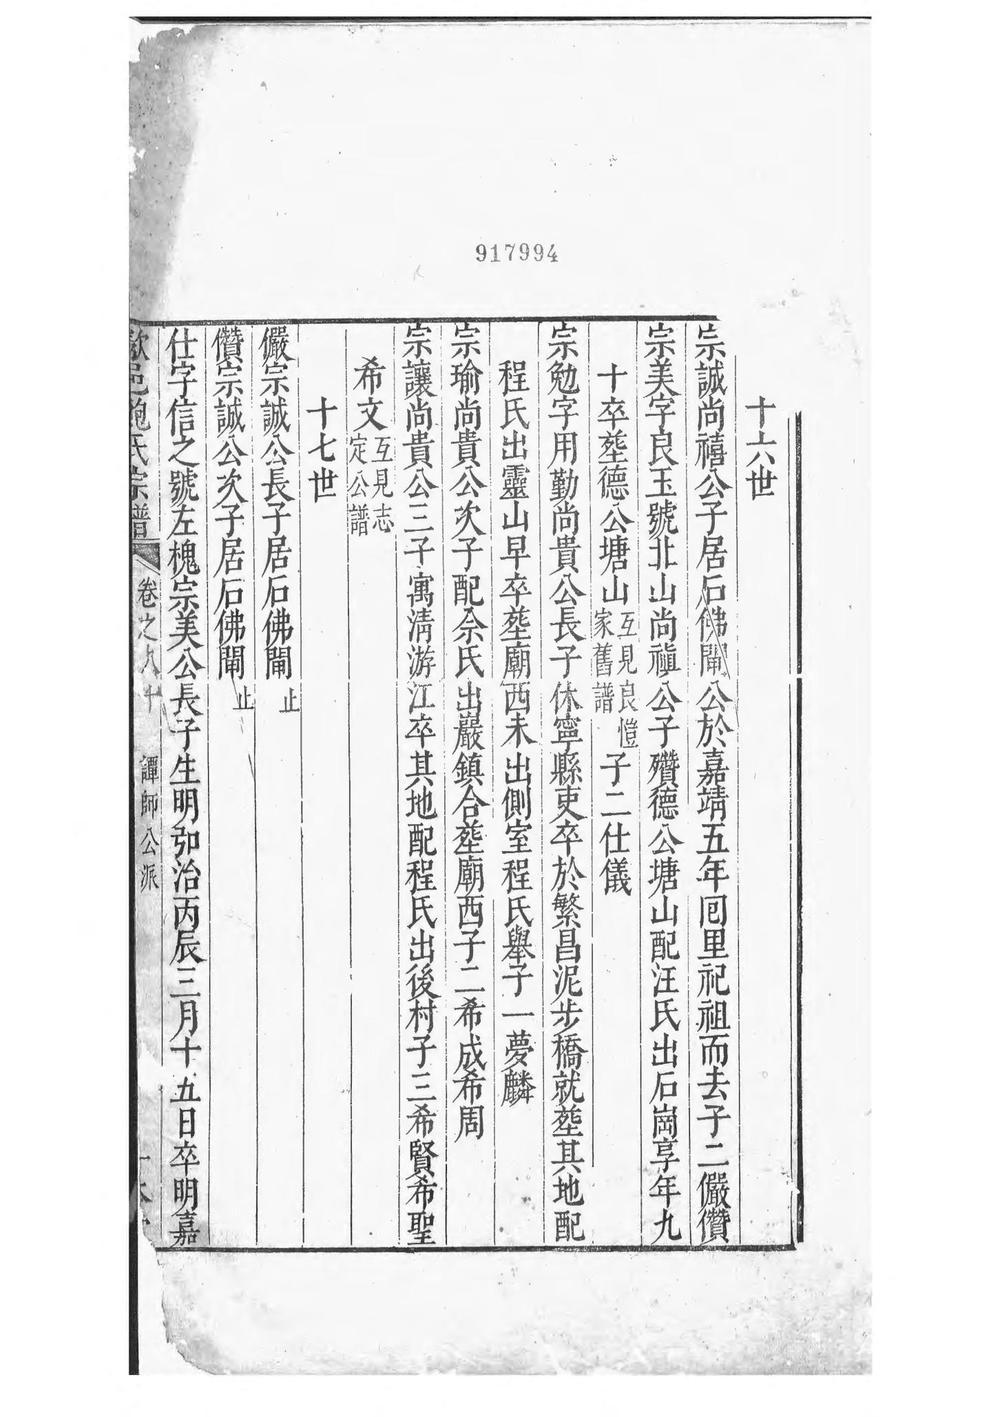 917994
十六世
宗誠尚禧公子居石佛閘公於嘉靖五年囘里祀祖而去子二儼儹
宗美字良玉號北山尚禛公子殯德公塘山配汪氏出石崗享年九
十卒塟德公塘山互見良愷家舊譜子二仕儀
宗勉字用勤尚貴公長子休寧縣吏卒於繁昌泥步橋就塟其地配
程氏出靈山早卒塟廟西未出側室程氏舉子一夢麟
宗瑜尚貴公次子配佘氏出巖鎮合塟廟西子二希成希周
宗讓尚貴公三子寓清游江卒其地配程氏出後村子三希賢希聖
希文互見志定公譜
十七世
儼宗誠公長子居石佛閘止
儹宗誠公次子居石佛閘止
仕字信之號左槐宗美公長子生明弘治丙辰三月十五日卒明嘉
歙邑鮑氏宗譜 卷之 譚師公派